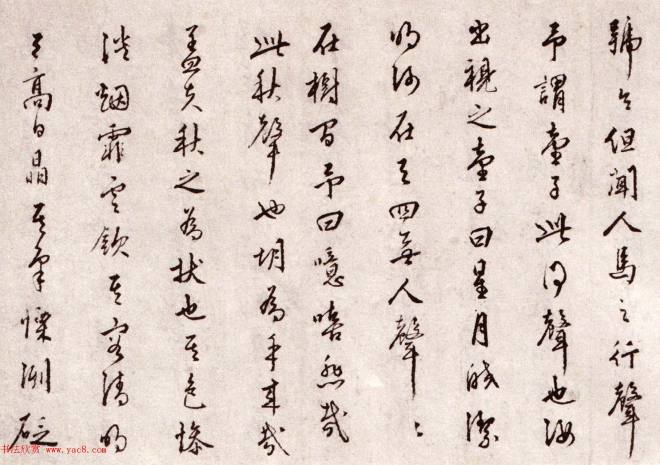 號令但聞人馬之行聲
予謂童子此何聲也汝
出視之童子曰星月皎潔
明河在天四無人聲〻
在樹間予曰噫嘻悲哉
此秋聲也胡為乎來哉
盖夫秋之為狀也其色慘
淡烟霏雲歛其容清明
天高日晶其氣慄冽砭
书法欣赏 www.yac8.com